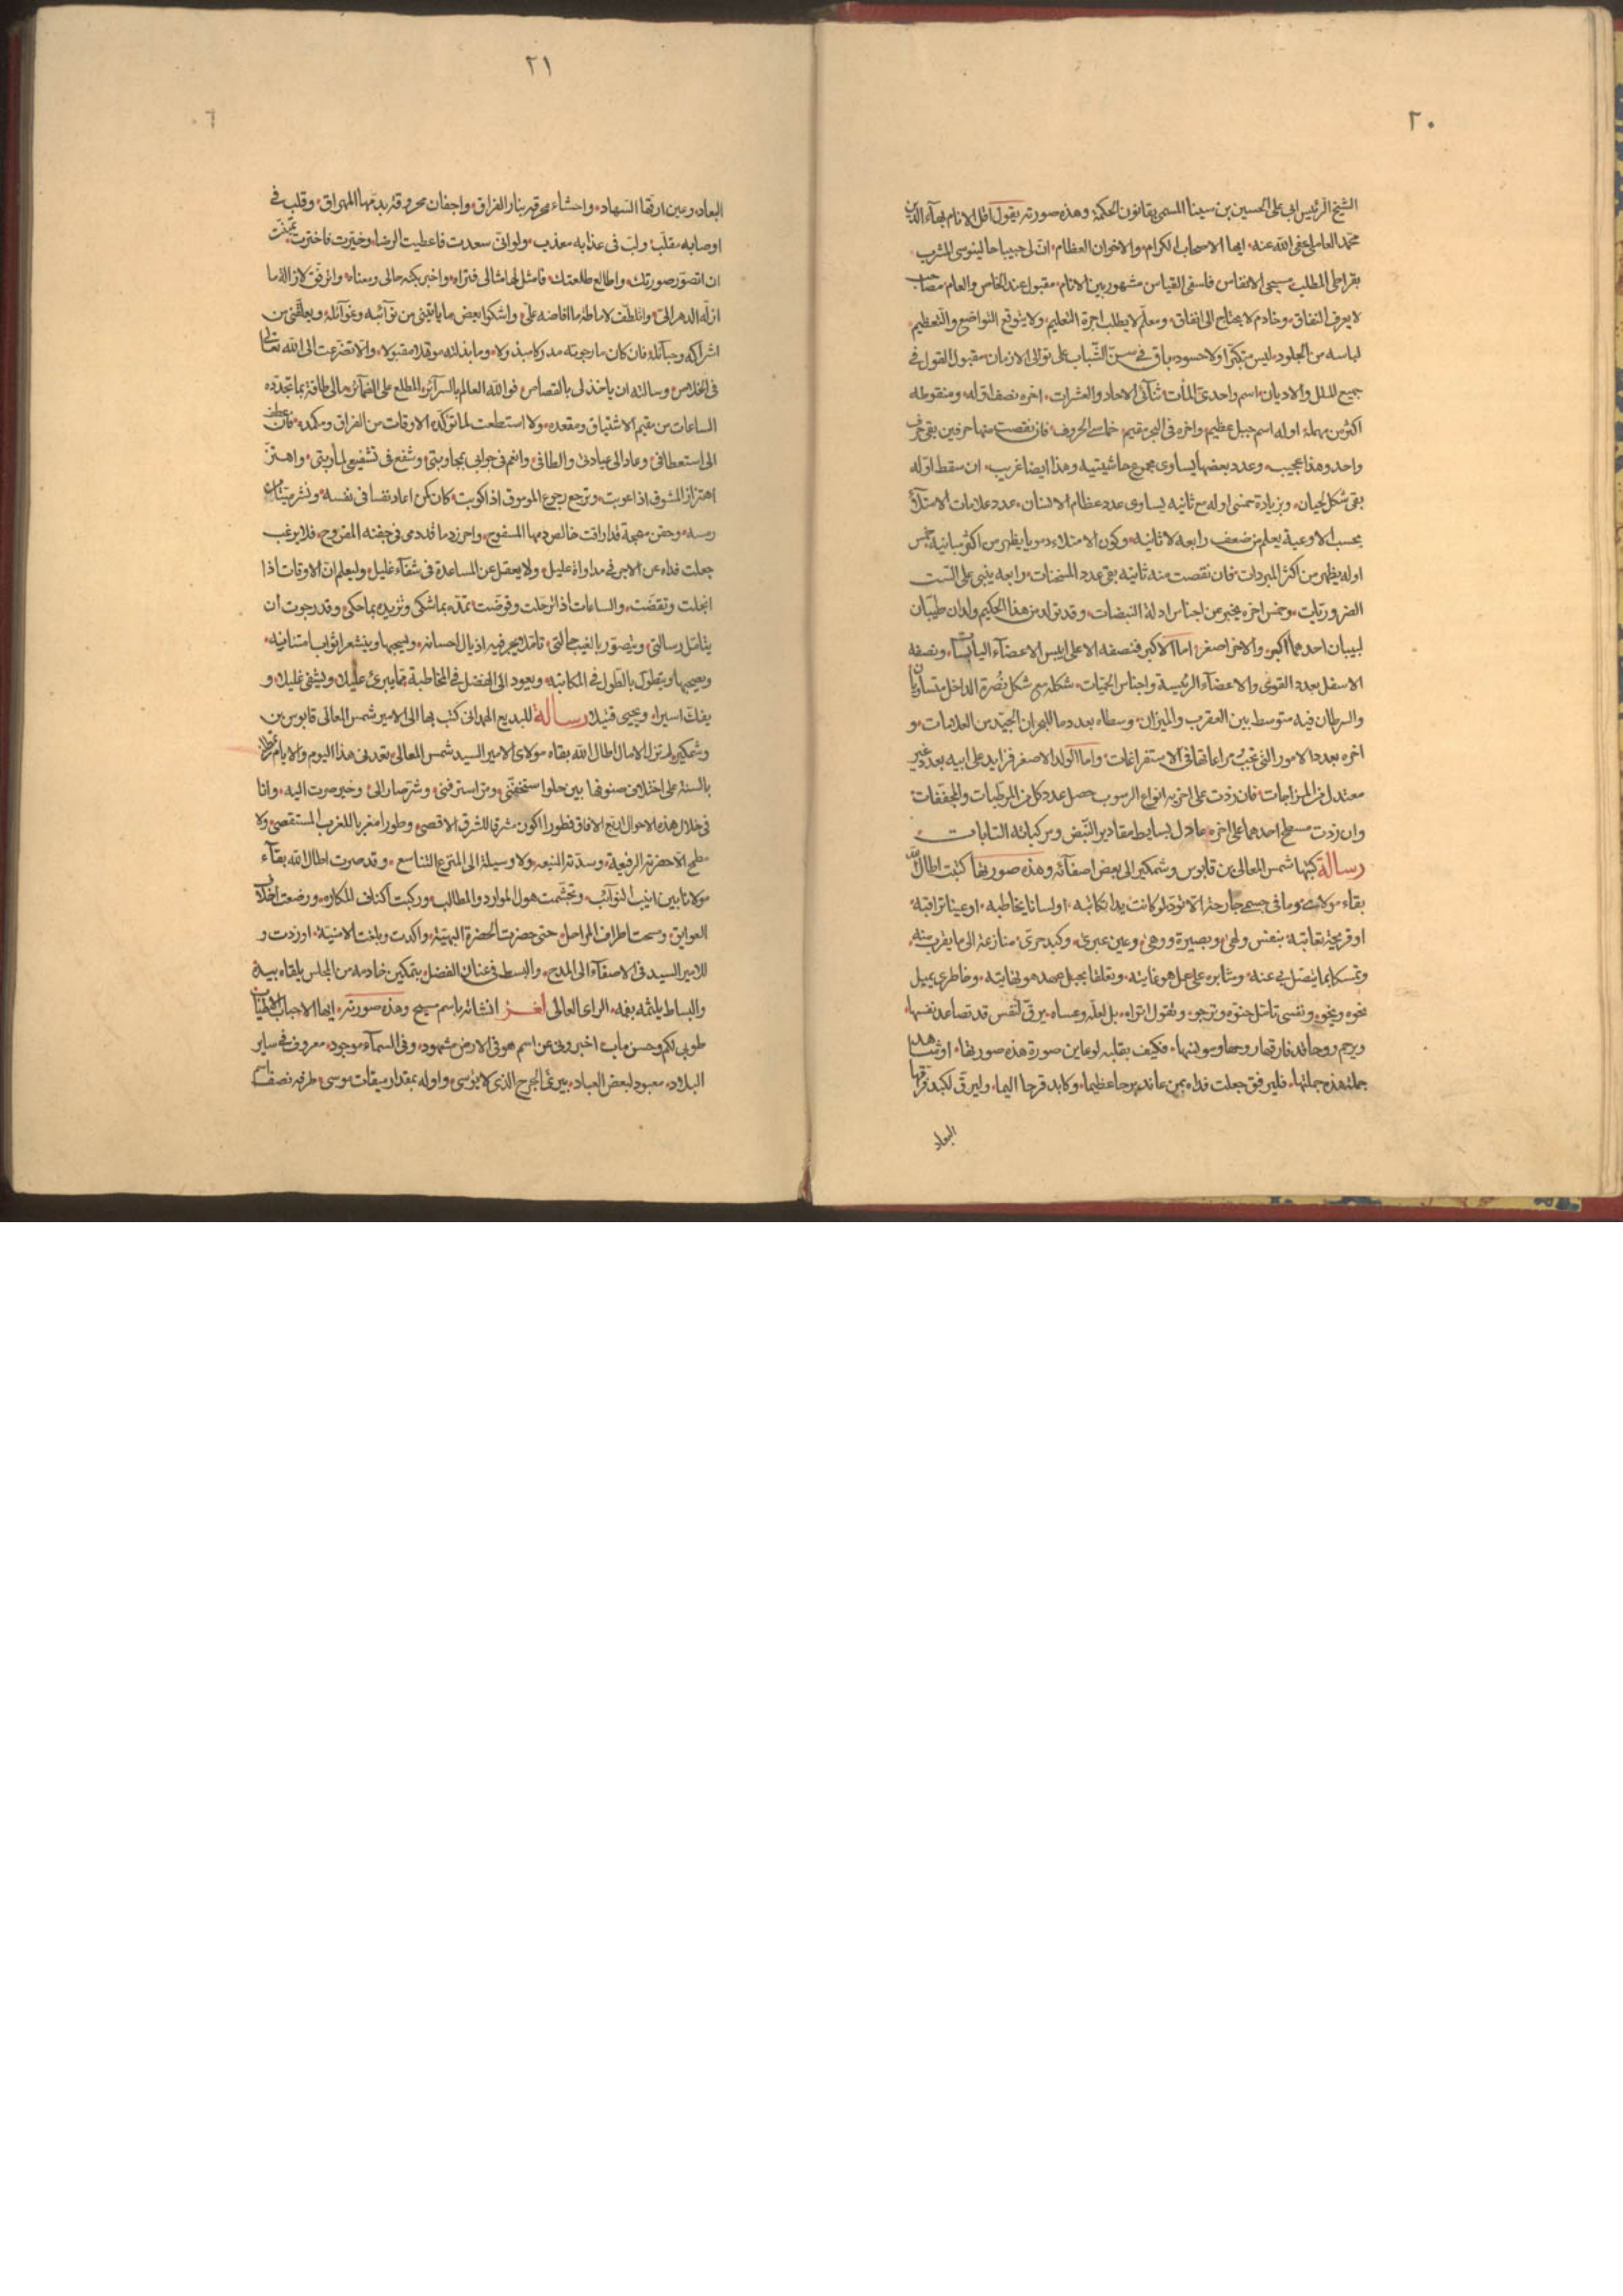 ٢٠
الشيخ الرئيس ابى على الحسين بن سينا المسمى بقانون الحكمة وهذه صورته يقول اقل الانام بهآء الدين
محمد العاملى عفى الله عنه ايها الاصحاب الكرام والاخوان العظام ان لى حبيبا جالينوسى المشرب
بقراطى المطلب مسيحى الانفاس فلسفى القياس مشهور بين الانام مقبول عند الخاص والعام مصاحب
لا يعرف النفاق وخادم لا يحتاج الى انفاق ومعلم لا يطلب اجرة التعليم ولا يتوقع التواضع والتعظيم
لباسه من الجلود ليس متكبرا ولا حسود باق فى سن الشباب على توالى الازمان مقبول القول فى
جميع الملل والاديان اسم واحدى المآت ثنآئى الاحاد والعشرات اخره نصف اوله ومنقوطه
اكثر من مهمله اوله اسم جبل عظيم واخره فى البحر مقيم خماسى الحروف فان نقصت منها حرفين بقى حرف
واحد وهذا عجيب وعدد بعضها يساوى مجموع حاشيتيه وهذا ايضا غريب ان سقط اوله
بقى شكل لحيان وبزيادة خمس اوله مع ثانيه يساوى عدد عظام الانسان عدد علامات الامتلآء
بحسب الاوعية يعلم من ضعف رابعه لا ثانيه وكون الامتلاء دمويا يظهر من اكثر مبانيه خمس
اوله يظهر من اكثر المبردات فان نقصت منه ثانيه بقى عدد المسخنات ورابعه ينبى على الست
الضروريات وخمس اخره يخبر عن اجناس ادلة النبضات وقد تولد من هذا الحكيم ولدان طيبان
لبيبان احدهما اكبر والاخر اصغر اما الاكبر فنصفه الاعلى ايبس الاعضآء اليابسات ونصفه
الاسفل بعدد القوى والاعضآء الرئيسة واجناس الحميات شكله سمى شكل نصرة الداخل متساويان
والسرطان فيه متوسط بين العقرب والميزان وسطاه بعدد ما للبحران الجيد من العلامات و
اخره بعدد الامور التى تجب مراعاتها فى الاستفراغات واما الولد الاصغر فزايد على ابيه بعدد غير
معتدل من المزاجات فان زدت على اخريه انواع الرسوب حصل عدد كل من المركبات والمجففات
وان زدت مسطح احدهما على اخره عادل بسايط مقادير النبض ومركباته الثنائيات
رسالة كتبها شمس المعالى بن قابوس وشمكير الى بعض اصفآئه وهذه صورتها كتبت اطال الله
بقاء مولاى وما فى جسمى جارحة الا تود لو كانت يدا تكاتبه او لسانا يخاطبه او عينا تراقبه
او قريحة تعاتبه بنفس ولهى وبصيرة ورهى وعين عبرى وكبد حرى منازعة الى ما يقرب منه
وتمسكا بما يتصل بى عنه ومثابره على عمل هو غايته وتعلقا بحبل عهد هو نهايته وخاطرى يميل
نحوه ونفسى تامل حنوه وترجو وتقول اتراه بل لعله وعساه يرق لنفس قد تصاعد نفسها
ويرحم روحا قد فارقها روحها ومونسها فكيف بقلبه لو عاين صورة هذه صورتها او شاهد
جملة هذه جملتها فليرفق جعلت فداه بمن عاند برحا عظيما وكابد قرحا اليما وليرق لكبد فرقها
البعاد
٢١
٦٠
البعاد وعين ارقها السهاد واحشاء محرقة بنار الفراق واجفان محروقة بدمعها المهراق وقلب فى
اوصابه مقلب ولب فى عذابه معذب ولو انى سعدت فاعطيت الرضا وخيرت فاخترت لتمنيت
ان اتصور صورتك واطالع طلعتك فامثل لها مثالى فتراه واخبر بكنه حالى ومعناه واترفق لازالة ما
ازله الدهر الى واتلطف لاماطة ما افاضه على واشكو بعض ما ياتينى من نوآئبه وغوآئله ويعلقنى من
اشراكه وحبآئله فان كان ما رجوته مدركا مبذولا وما بذلته موقعا مقبولا والا تضرعت الى الله تعالى
فى الخلاص وسالته ان ياخذ لى بالقصاص فوالله العالم بالسرآئر المطلع على الضمآئر مالى طاقة بما تجدده
الساعات من مقيم الاشتياق ومقعده ولا استطعت لما توكده الاوقات من الفراق ومكمده فان عطف
الى استعطافى وعاد الى عيادتى والطافى وانعم فى جوابى بمجاوبتى وشفع فى تشفيعى لماربتى واهتز
اهتزاز المشوق اذا عوتب ورجع رجوع الموموق اذا كوتب كان كمن اعاد نفسا فى نفسه ونشر ميتا من
رمسه وحقن مهجة قد اراقت خالص دمها المسفوح واحرز دما قد دمى فى جفنه المقروح فلا يرغب
جعلت فداه عن الاجر فى مداواة عليل ولا يعفل عن المساعدة فى شفآء غليل وليعلم ان الاوقات اذا
انجلت وتقضت والساعات اذا ترحلت وقوضت تمده بما شكى وتزيده بما حكى وقد رجوت ان
يتامل رسالتى ويتصور بالغيب حالتى تاملا يجر فيه اذيال احسانه ويسحبها وينشر اثواب امتنانه
ويصحبها ويتطول بالطول فى المكاتبة ويعود الى الفضل فى المخاطبة فما يبرئ عليلك ويشفى غليلك و
يفك اسيرا ويحيى قتيلا رسالة للبديع الهمدانى كتب بها الى الامير شمس المعالى قابوس بن
وشمكير لم تزل الامال اطال الله بقاء مولاى الامير السيد شمس المعالى تعدنى هذا اليوم والايام
بالسنة على اختلاف صنوفها بين حلو استخفنى ومر استرفنى وشر صار الى وخير صرت اليه وانا
فى خلال هذه الاحوال اذرع الافاق فطورا اكون مشرقا للشرق الاقصى وطورا مغربا للغرب المستقصى ولا
مطمح الا حضرته الرفيعة وسدته المنيعه ولا وسيلة الى المنزع الشاسع وقد صرت اطال الله بقآء
مولانا بين انياب النوآئب وتجشمت هول الموارد والمطالب وركبت اكناف المكاره ورضعت اخلاف
العوايق ومسحت اطراف المراحل حتى حضرت الحضرة البهية واكدت وبلغت الامنية او زدت و
للامير السيد فى الاصغآء الى المدح والبسط فى عنان الفضل بتمكين خادمه من المجلس يلقاه بيده
والبساط يلثمه بفمه الراى العالى لغز انشائه باسم مسيح وهذه صورته ايها الاحباب
طوبى لكم وحسن ماب اخبرونى عن اسم هو فى الارض مشهود وفى السمآء موجود معروف فى ساير
البلاد معبود لبعض العباد يبرئ الجرح الذى لا يؤسى واوله بمقدار ميقات موسى طرفه نصف اسم